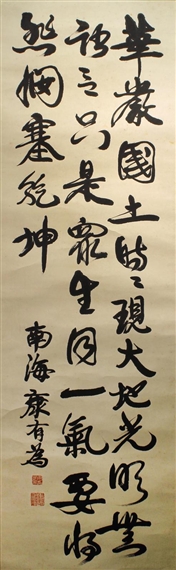 華嚴國土時々現大地光明無
語言只是眾生同一氣要將
悲憫塞乾坤
南海康有為